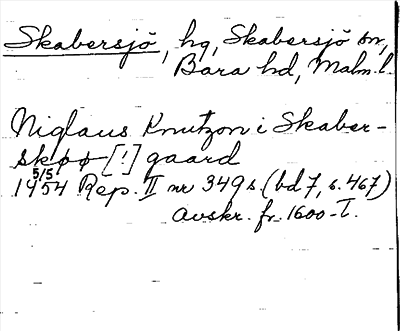 Skabersjö, hg, Skabersjö sn,
Bara hd, Malm. l.
Niglaus Knutzon i Skaber-
skøø [!] gaard
5/5
1454 Rep. II nr 349 s (bd 7, s. 467)
avskr. fr. 1600-t.